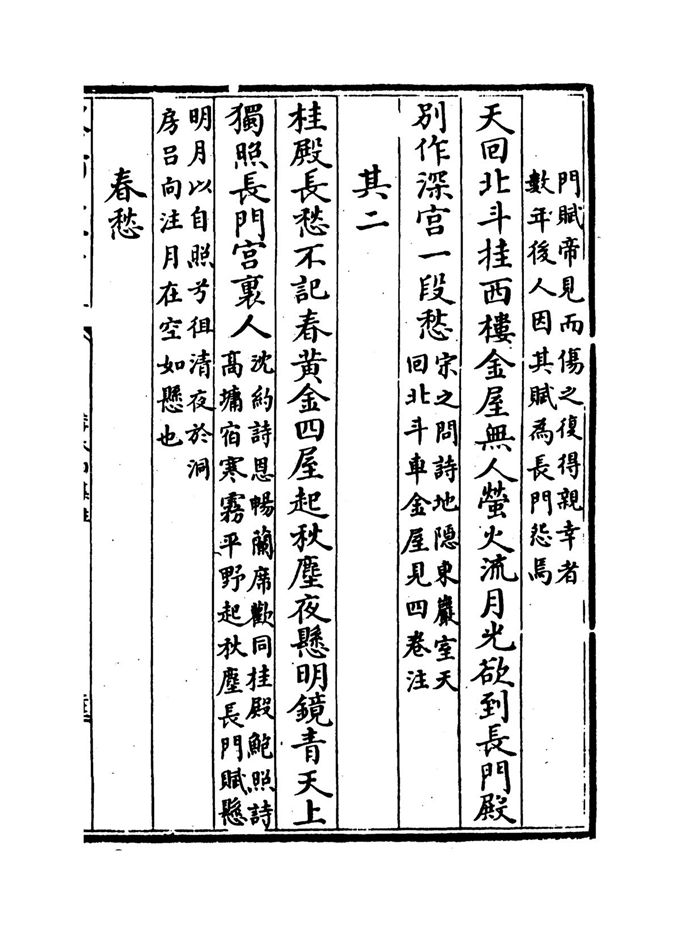 門賦帝見而傷之復得親幸者
數年後人因其賦為長門怨焉
天回北斗挂西樓金屋無人螢火流月光欲到長門殿
別作深宮一段愁
宋之問詩地隱東巖室天
回北斗車金屋見四卷注
其二
桂殿長愁不記春黃金四屋起秋塵夜懸明鏡青天上
獨照長門宮裏人
沈約詩恩暢蘭席歡同桂殿鮑照詩
高墉宿寒霧平野起秋塵長門賦懸
明月以自照兮徂清夜於洞
房呂向注月在空如懸也
春愁